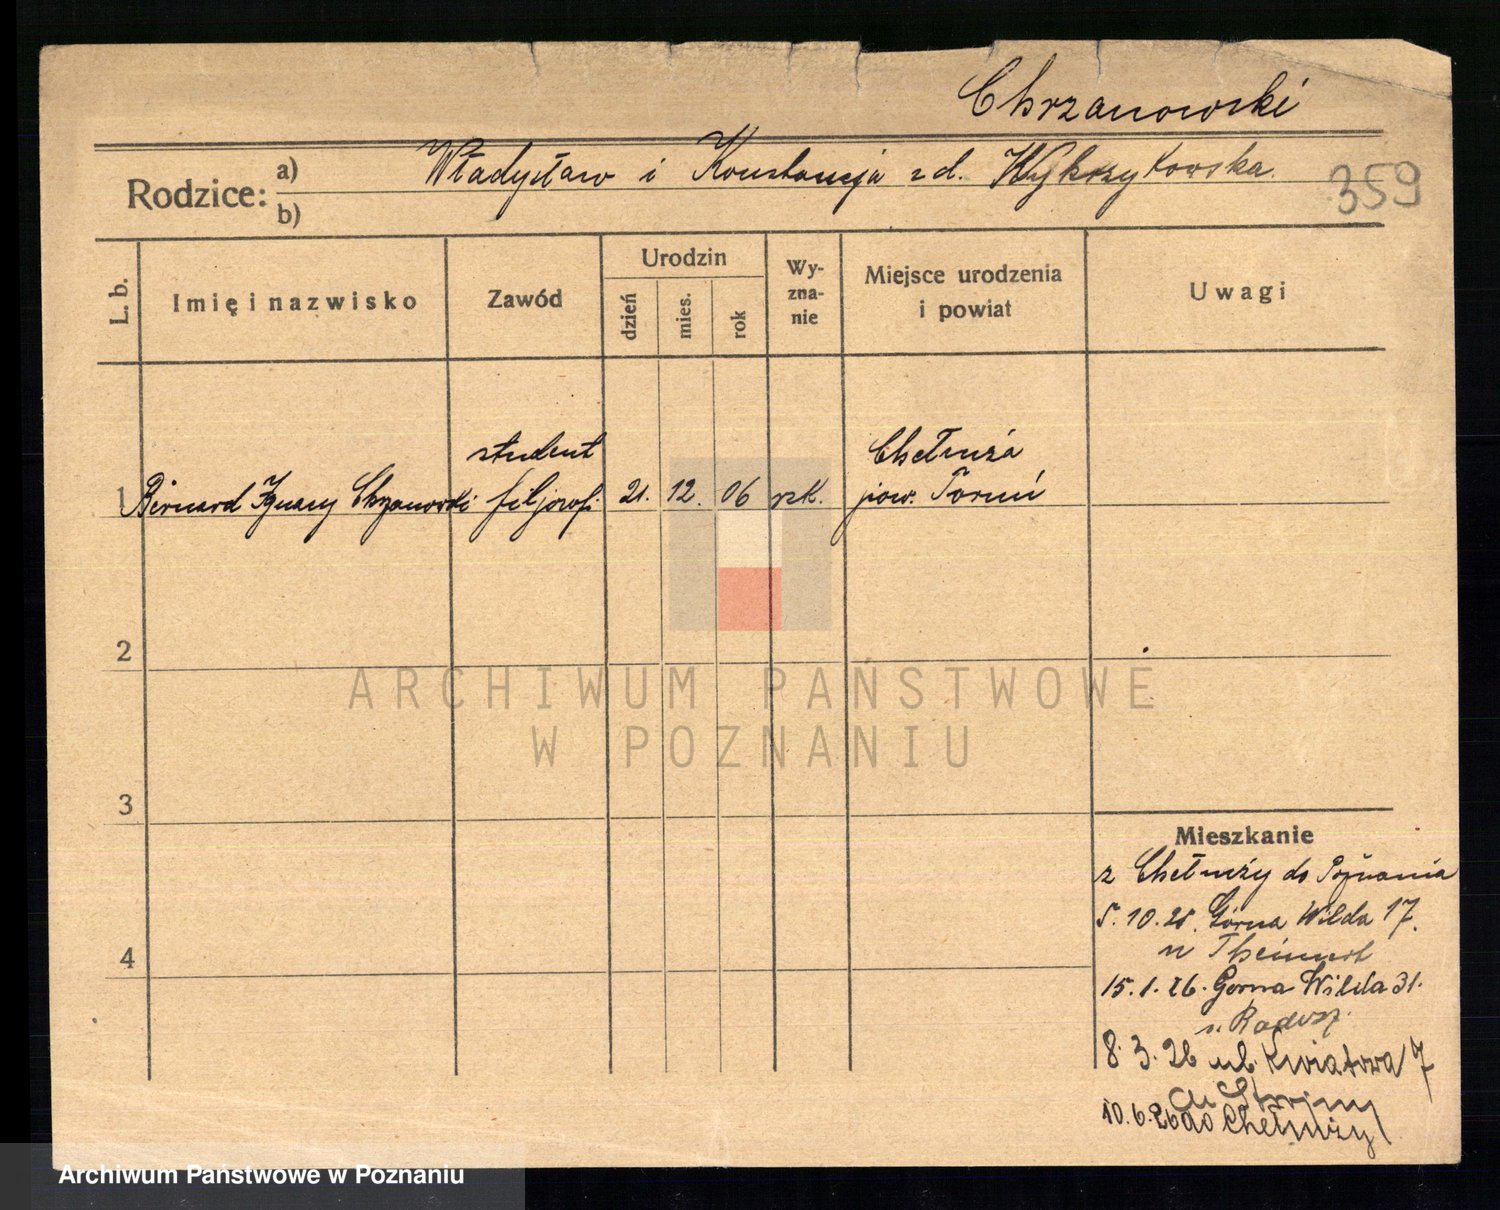 Chrzanowski
Rodzice: a) b)
Władysław i Konstancja z d. Wykrzykowska
359
L. b.
Imię i nazwisko
Zawód
Urodzin
dzień
mies.
rok
Wy-
zna-
nie
Miejsce urodzenia
i powiat
Uwagi
student
Chełmża
1 Bernard Ignacy Chrzanowski filozofi 21. 12. 06 rzk. pow. Toruń
2
3
4
Mieszkanie
z Chełmży do Poznania
5.10.25. Górna Wilda 17.
u Theinert
15.1.26. Gorna Wilda 31.
u.
8.3.26 ul. Kwiatowa 7
10.6.26 do Chełmży
ARCHIWUM PAŃSTWOWE
W POZNANIU
Archiwum Państwowe w Poznaniu